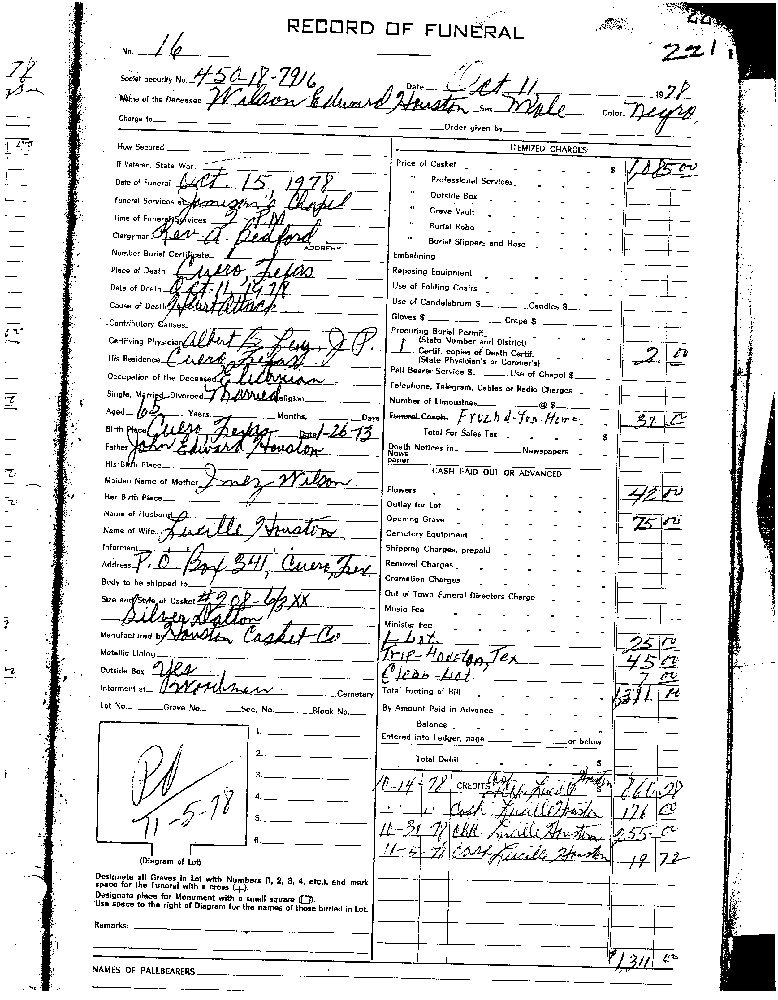 RECORD OF FUNERAL
221
No. 16
Social Security No. 450-18-7916 Date Oct 11 1978
Name of the Deceased Wilson Edward Houston Sex Male Color Negro
Charge to Order given by
How Secured
If Veteran, State War
Date of Funeral Oct. 15, 1978
Funeral Services at Jameson's Chapel
Time of Funeral Services 2 PM
Clergyman Rev. A. Bedford ADDRESS
Number Burial Certificate
Place of Death Cuero, Texas
Date of Death Oct. 11, 1978
Cause of Death Heart attack
Contributory Causes
Certifying Physician Albert J.P.
His Residence Cuero Texas
Occupation of the Deceased
Single, Married, Divorced Married Religion
Aged 65 Years Months Days
Birth Place Cuero Texas Date 1-26-13
Father John Edward Houston
His Birth Place
Maiden Name of Mother Inez Wilson
Her Birth Place
Name of Husband
Name of Wife Lucille Houston
Informant
Address P.O Box 341, Cuero, Tex
Body to be shipped to
Size and Style of Casket #208-6/3 XX
Silver Dalton
Manufactured by Houston Casket Co
Metallic Lining
Outside Box Yes
Interment at Woodmen Cemetery
Lot No. Grave No. Sec. No. Block No.
Pd
11-5-78
1.
2.
3.
4.
5.
6.
(Diagram of Lot)
Designate all Graves in Lot with Numbers (1, 2, 3, 4, etc.), and mark
space for the funeral with a cross (+).
Designate place for Monument with a small square (□).
Use space to the right of Diagram for the names of those burried in Lot.
Remarks:
NAMES OF PALLBEARERS
ITEMIZED CHARGES
Price of Casket $ 1,085 00
" Professional Services
" Outside Box
" Grave Vault
" Burial Robe
" Burial Slippers and Hose
Embalming
Reposing Equipment
Use of Folding Chairs
Use of Candelabrum $ Candles $
Gloves $ Crepe $
Procuring Burial Permit
(State Number and District)
1 Certif. copies of Death Certif.
(State Physician's or Coroner's) 2 00
Pall Bearer Service $ Use of Chapel $
Telephone, Telegram, Cables or Radio Charges
Number of Limousines @ $
Funeral Coach
Total For Sales Tax $
Death Notices in Newspapers
News
paper
CASH PAID OUT OR ADVANCED
Flowers 42 00
Outlay for Lot
Opening Grave 75 00
Cemetery Equipment
Shipping Charges, prepaid
Removal Charges
Cremation Charges
Out of Town Funeral Directors Charge
Music Fee
Minister Fee
1 Lot 25 00
Trip-Houston, Tex 45 00
Clean Lot 7 00
Total Footing of Bill
By Amount Paid in Advance
Balance
Entered into Ledger, page or below
Total Debit
10-14-78 CREDITS Houston
" " " Cash Lucille Houston 176 00
78 Lucille Houston 255 00
Cash Lucille Houston 19 72
$1,311 00